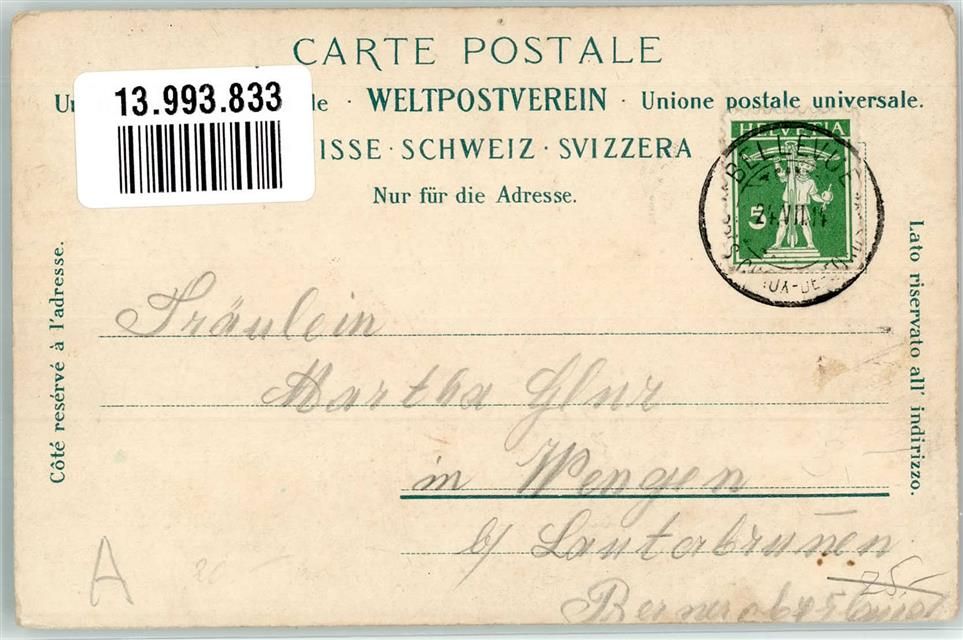 CARTE POSTALE
13.993.833
WELTPOSTVEREIN · Unione postale universale.
ISSE · SCHWEIZ · SVIZZERA
Nur für die Adresse.
HELVETIA
BELLEVUE
5
24.VII.14
Côté resérvé à l'adresse.
Lato riservato all' indirizzo.
Fräulein
Martha Glur
in Wengen
b/ Lauterbrunnen
Berner
25.-
A